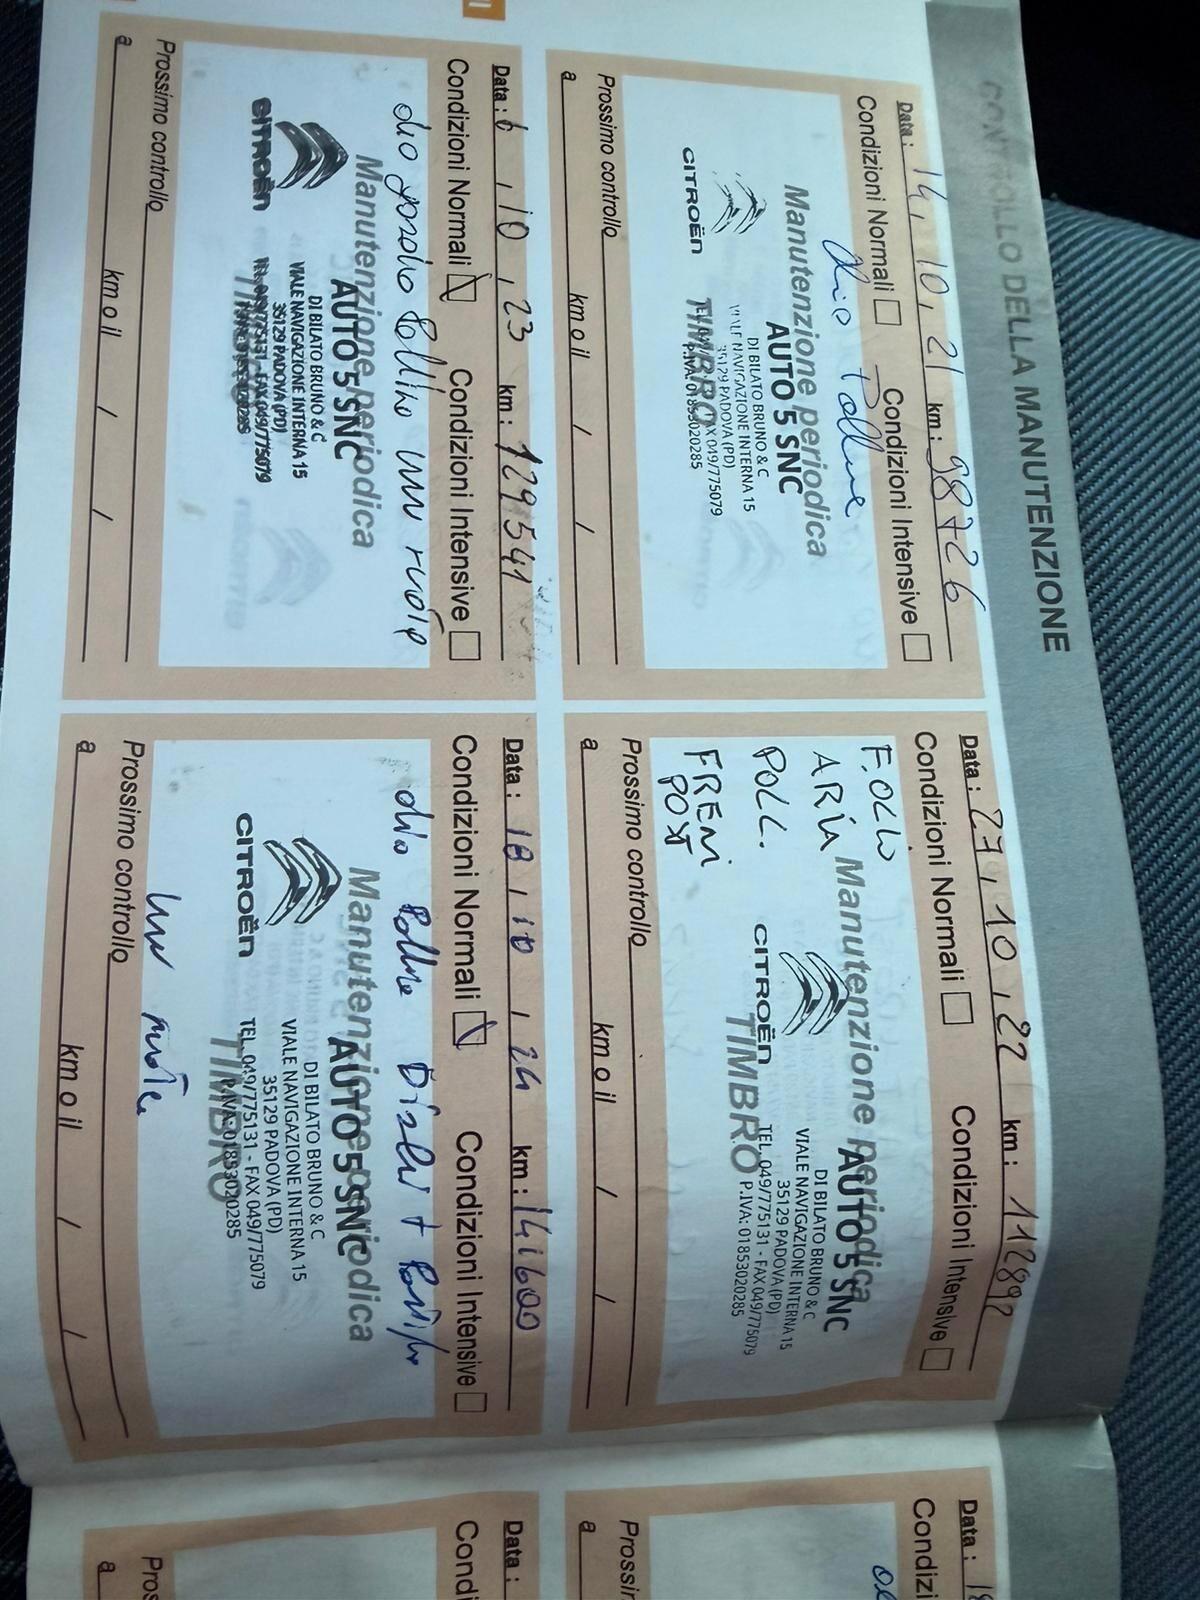 CONTROLLO DELLA MANUTENZIONE
Data: 14, 10, 21 km: 98726
Condizioni Normali Condizioni Intensive
olio Polline
Manutenzione periodica
AUTO 5 SNC
DI BILATO BRUNO & C
VIALE NAVIGAZIONE INTERNA 15
35129 PADOVA (PD)
FAX 049/775079
P.IVA: 01853020285
CITROËN
TIMBRO
Prossimo controllo
a km o il / /
Data: 27, 10, 22 km: 112892
Condizioni Normali Condizioni Intensive
F.OLIO
ARIA
POLL.
FRENI
POST
Manutenzione periodica
AUTO 5 SNC
DI BILATO BRUNO & C
VIALE NAVIGAZIONE INTERNA 15
35129 PADOVA (PD)
TEL. 049/775131 - FAX 049/775079
P.IVA: 01853020285
CITROËN
TIMBRO
Prossimo controllo
a km o il / /
Data: 6, 10, 23 km: 129541
Condizioni Normali Condizioni Intensive
olio
Manutenzione periodica
AUTO 5 SNC
DI BILATO BRUNO & C
VIALE NAVIGAZIONE INTERNA 15
35129 PADOVA (PD)
TEL. 049/775131 - FAX 049/775079
CITROËN
TIMBRO
Prossimo controllo
a km o il / /
Data: 18, 10, 24 km: 141600
Condizioni Normali Condizioni Intensive
olio Polline Dischi + Pastiglie
Manutenzione periodica
AUTO 5 SNC
DI BILATO BRUNO & C
VIALE NAVIGAZIONE INTERNA 15
35129 PADOVA (PD)
TEL. 049/775131 - FAX 049/775079
P.IVA: 01853020285
CITROËN
TIMBRO
Prossimo controllo
a km o il / /
Data: 18
Condizi
Prossin
a
Data:
Condi
Pros
a